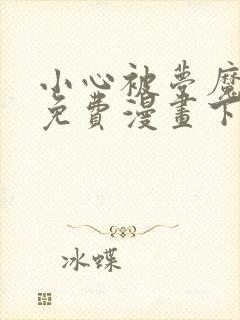 小心被夢魔
免費漫畫下
冰蝶